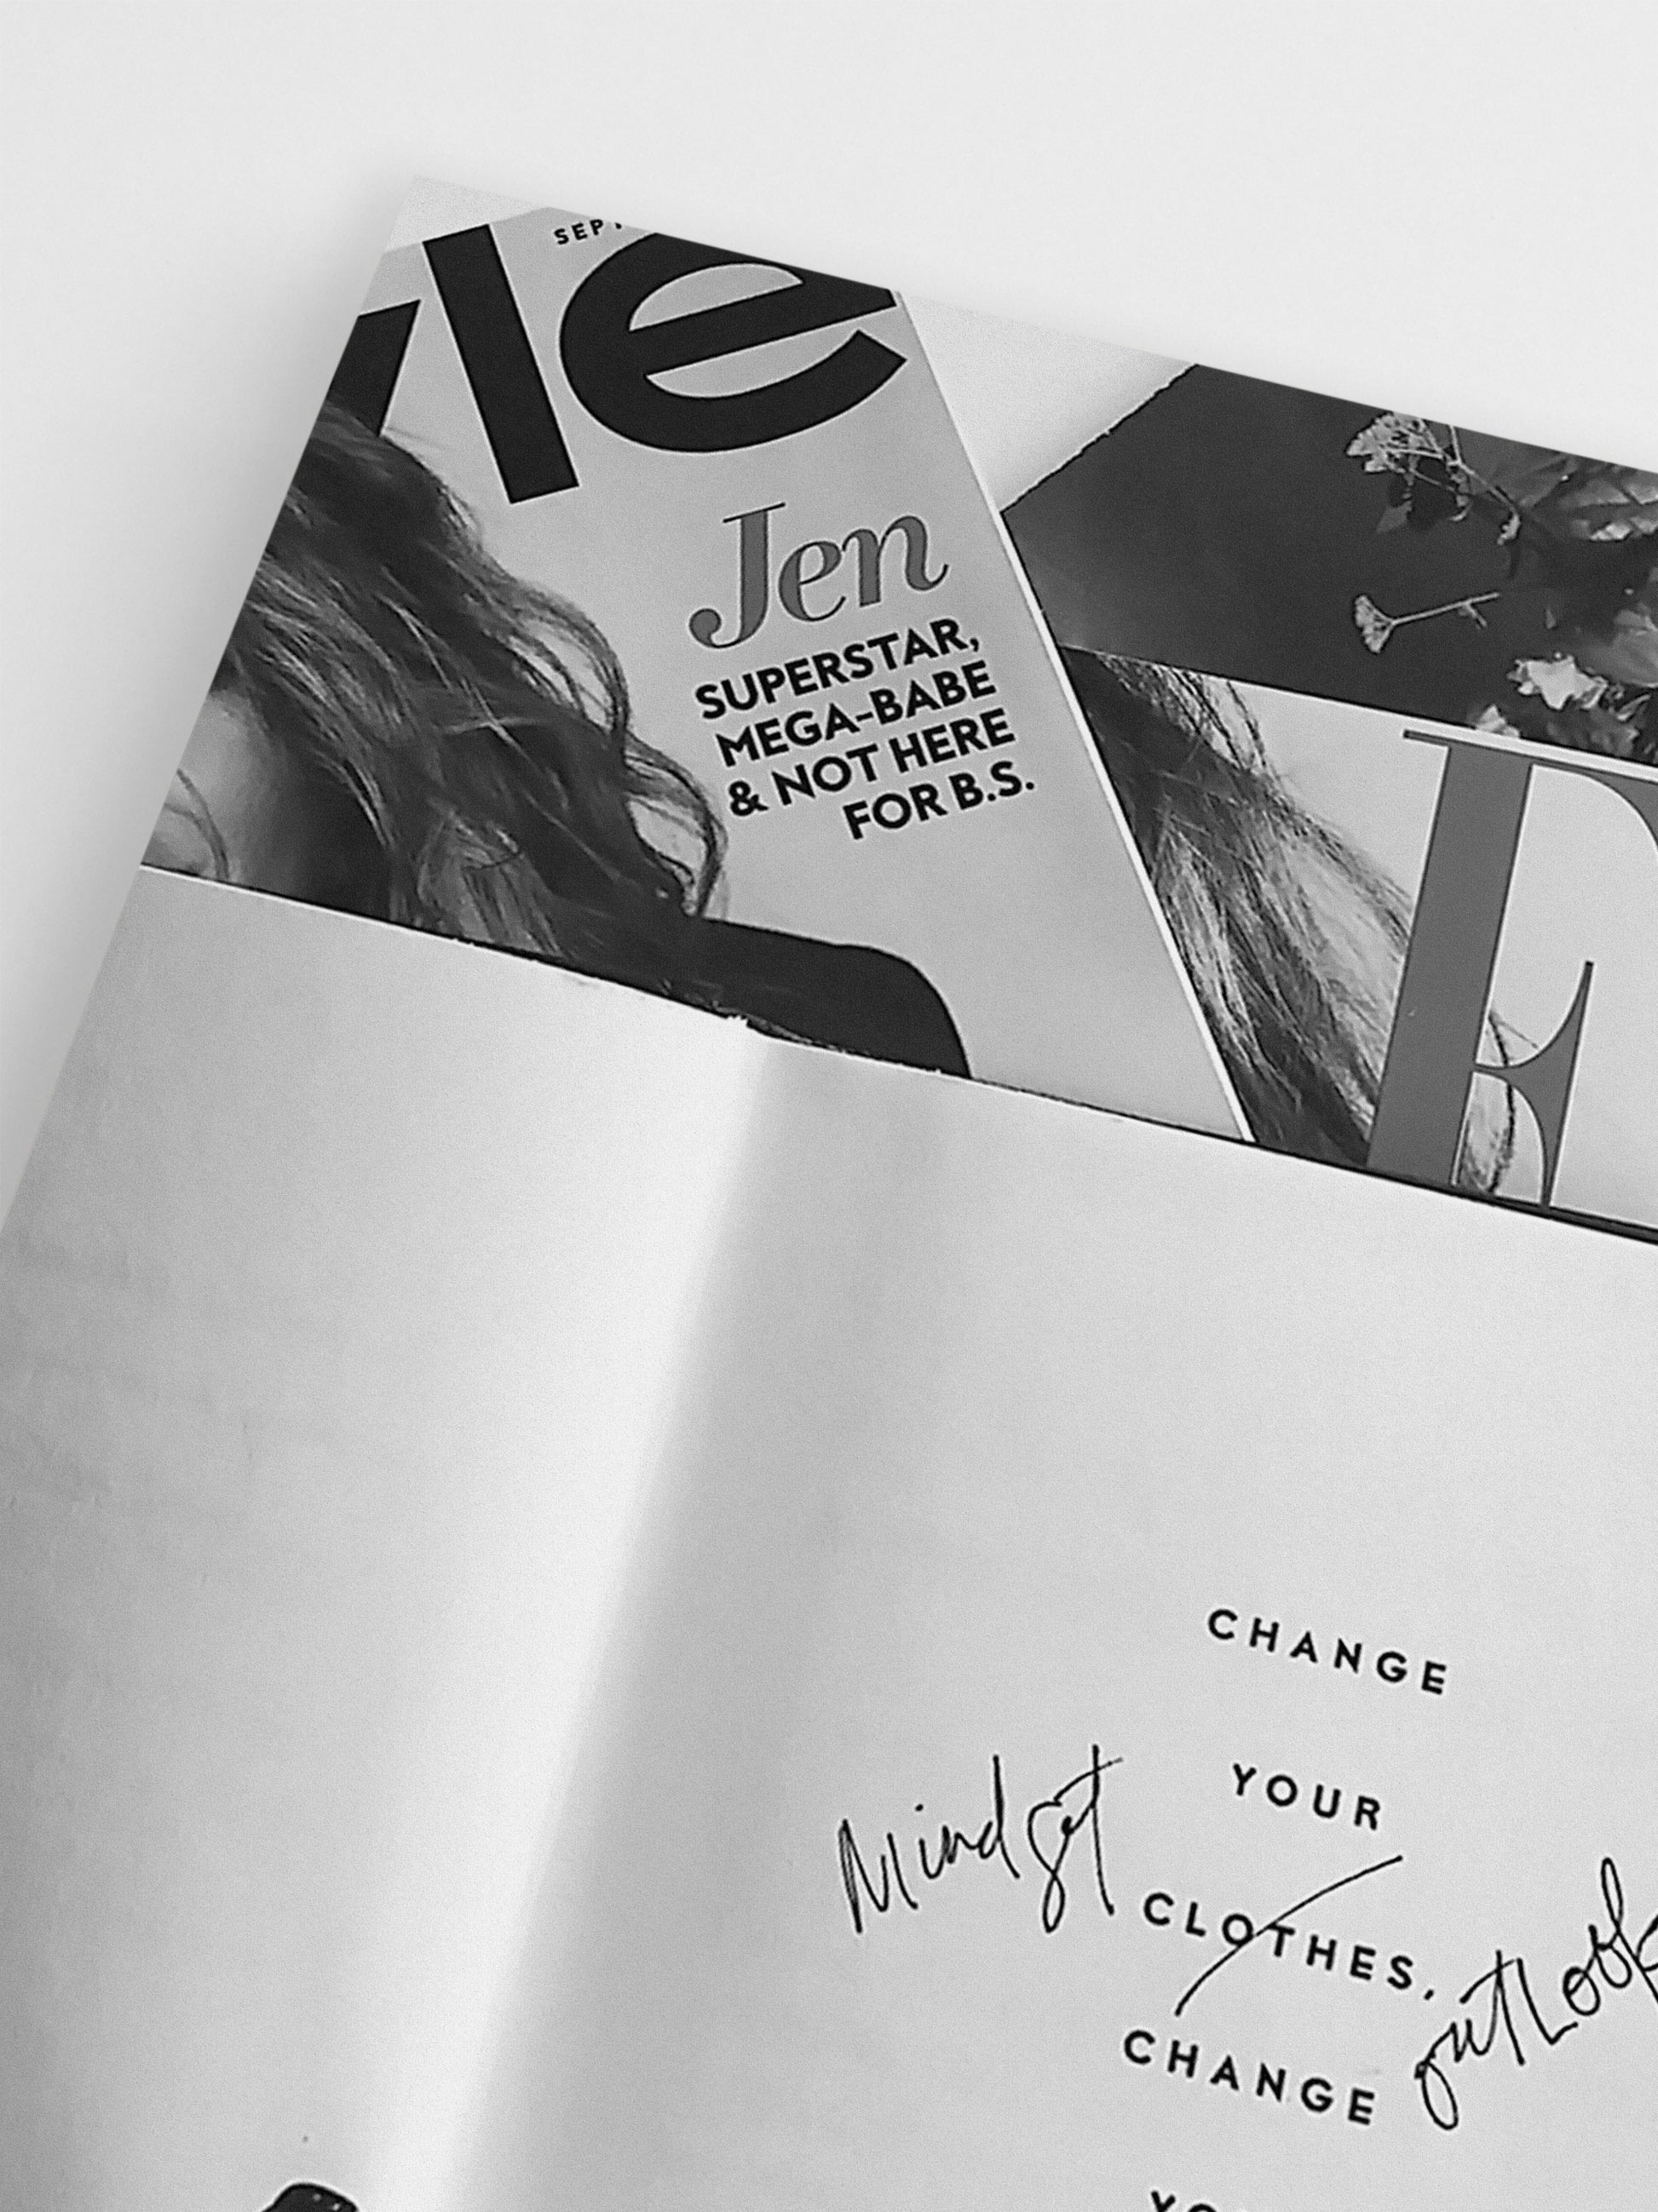 SEPT
le
Jen
SUPERSTAR,
MEGA-BABE
& NOT HERE
FOR B.S.
CHANGE
YOUR
Mindset
CLOTHES,
outlook
CHANGE